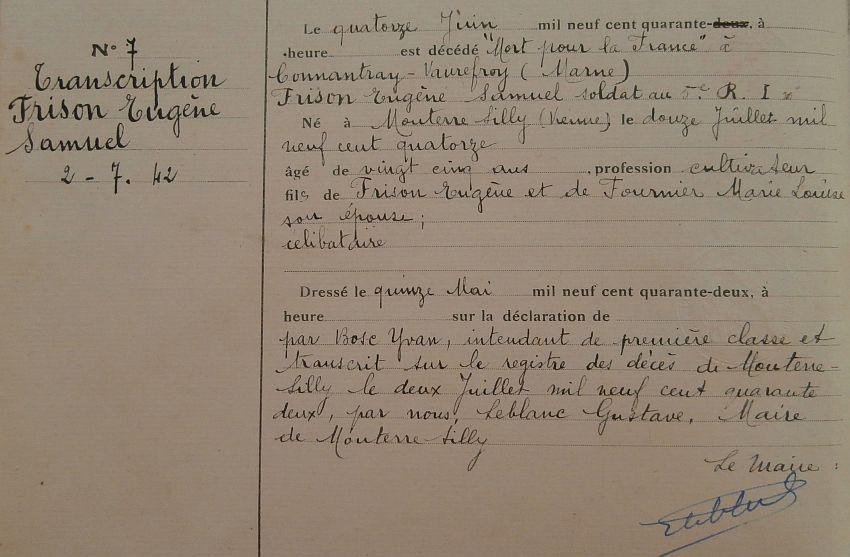 Nº 7
Transcription
Frison Eugène
Samuel
2 - 7. 42
Le quatorze Juin mil neuf cent quarante-deux, à
heure est décédé "Mort pour la France" à
Connantray-Vaurefroy (Marne)
Frison Eugène Samuel soldat au 5e R. I
Né à Mouterre Silly (Vienne) le douze Juillet mil
neuf cent quatorze
âgé de vingt cinq ans, profession cultivateur
fils de Frison Eugène et de Fournier Marie Louise
son épouse;
célibataire
Dressé le quinze Mai mil neuf cent quarante-deux, à
heure sur la déclaration de
par Bosc Yvan, intendant de première classe et
transcrit sur le registre des décès de Mouterre-
Silly le deux Juillet mil neuf cent quarante
deux, par nous, Leblanc Gustave, Maire
de Mouterre Silly
Le Maire :